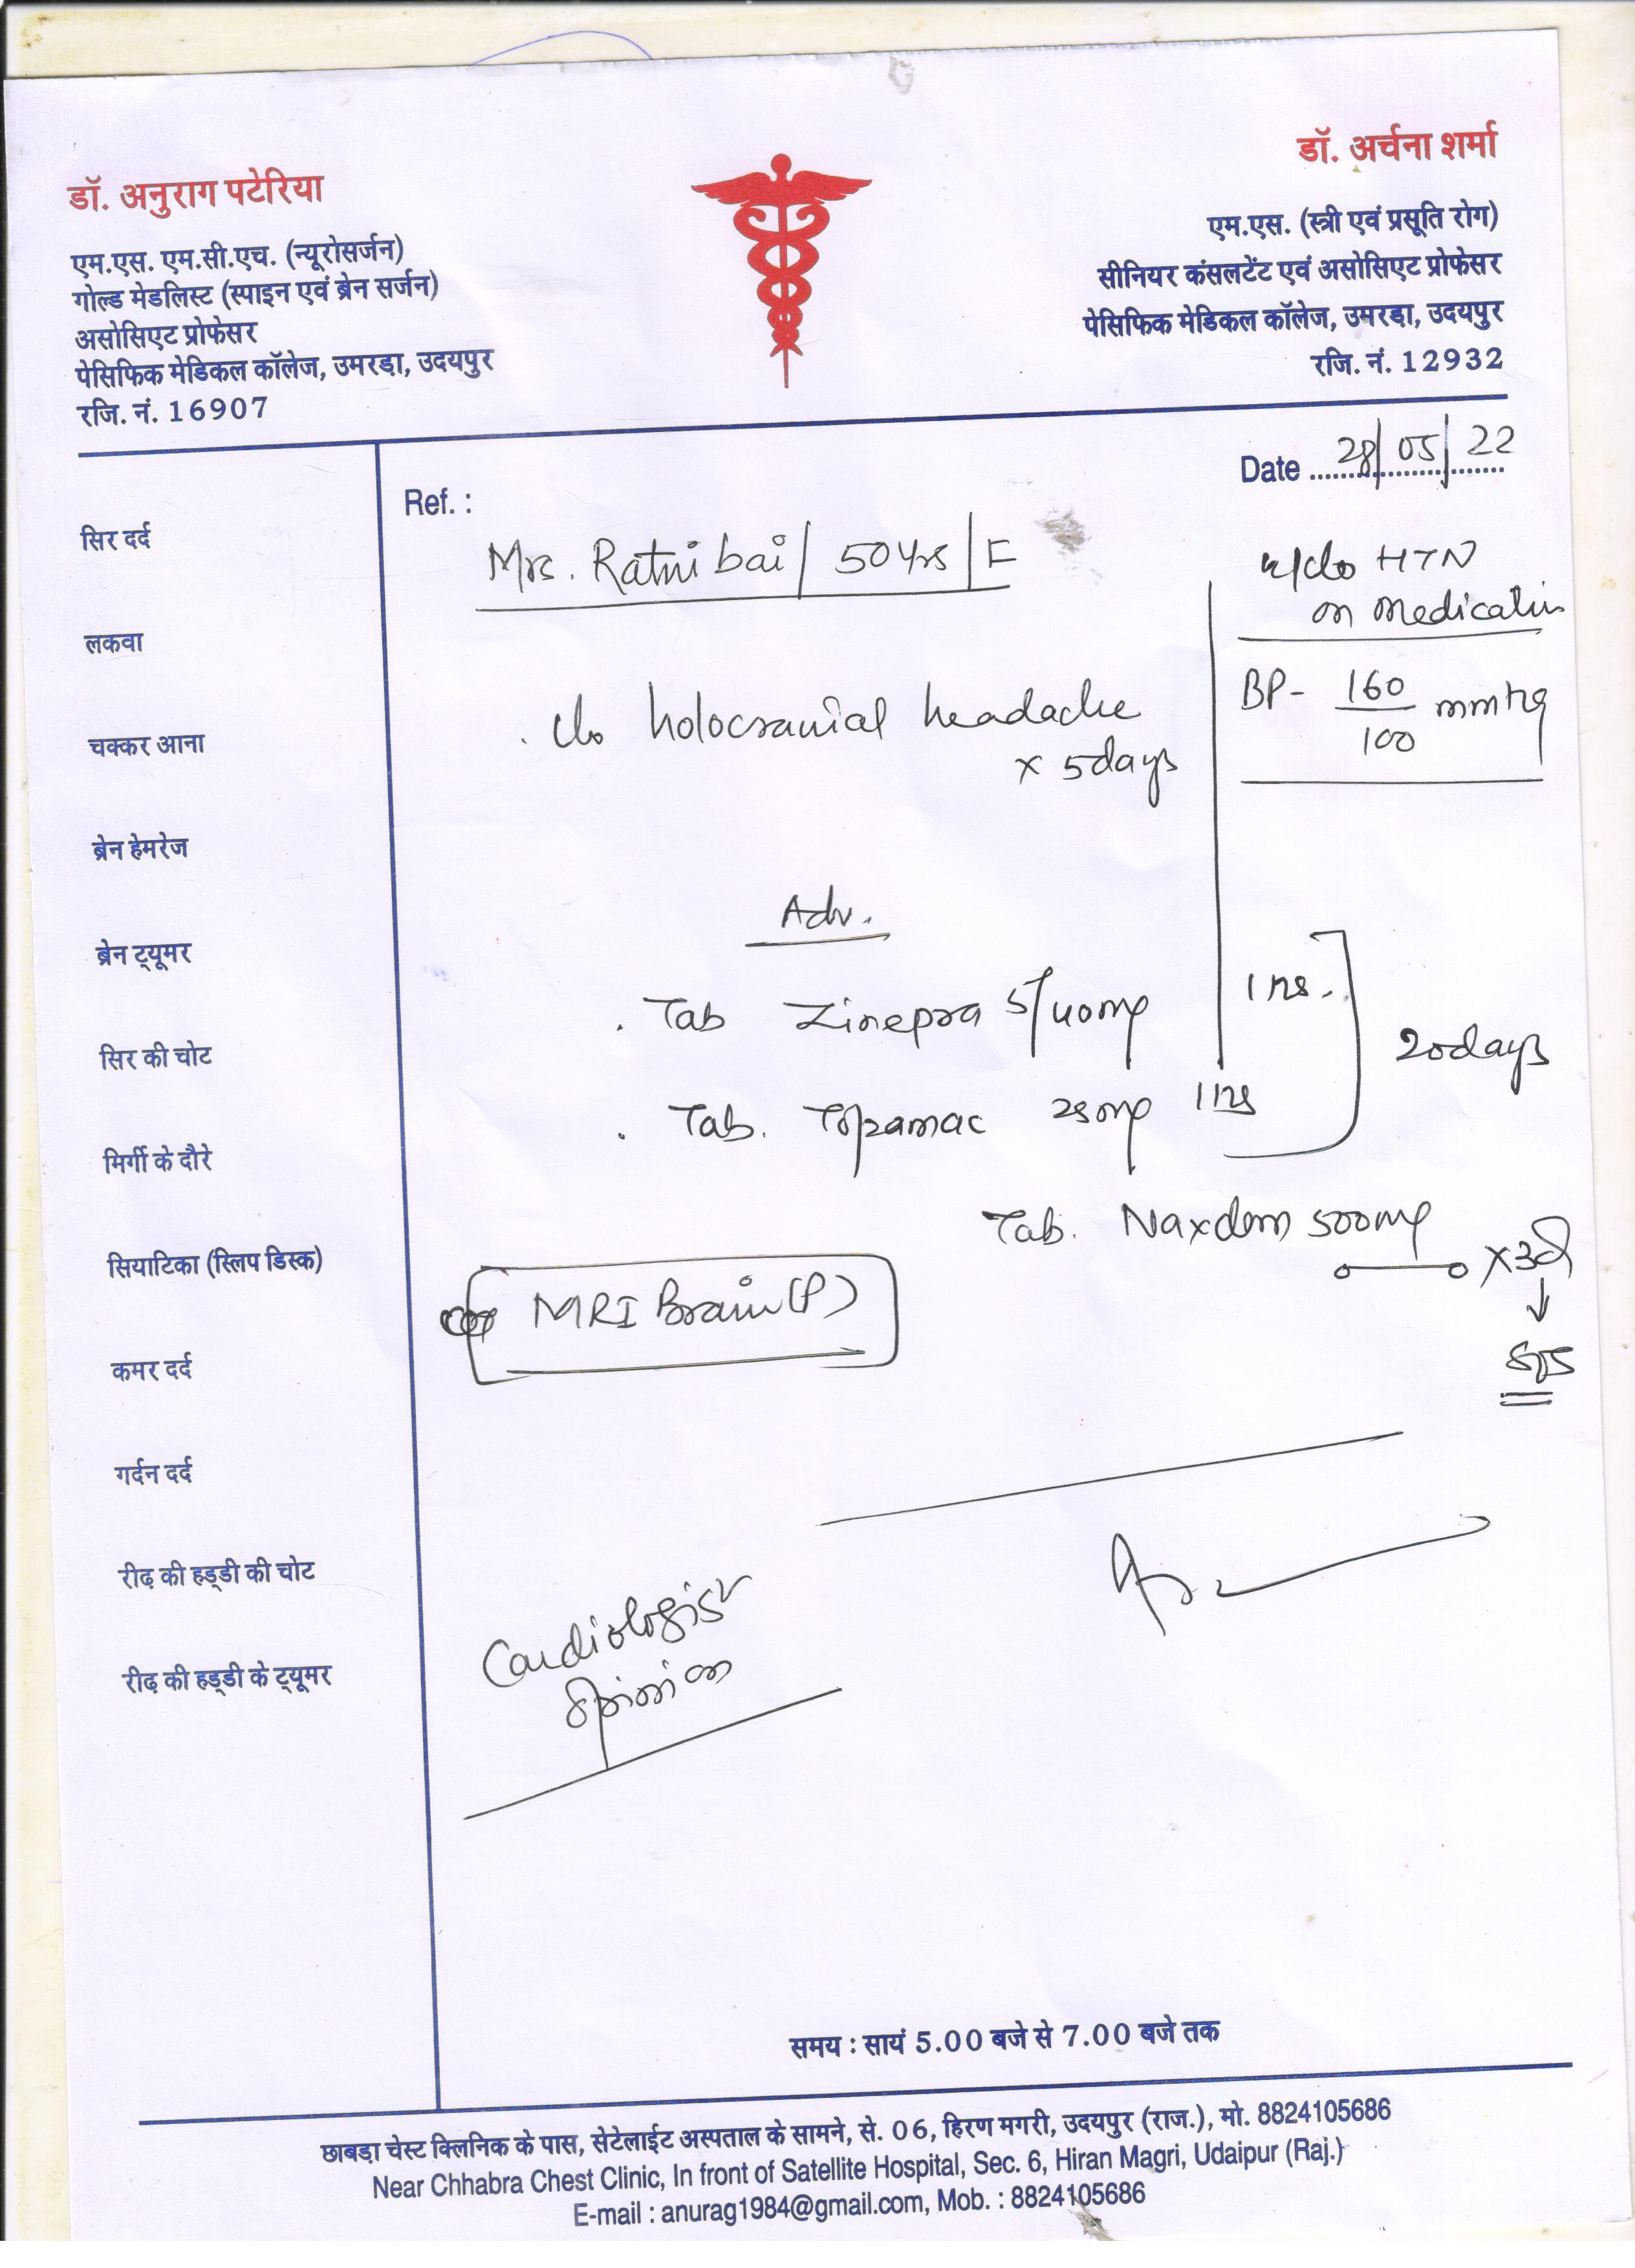 डॉ. अनुराग पटेरिया
एम.एस. एम.सी.एच. (न्यूरोसर्जन)
गोल्ड मेडलिस्ट (स्पाइन एवं ब्रेन सर्जन)
असोसिएट प्रोफेसर
पेसिफिक मेडिकल कॉलेज, उमरड़ा, उदयपुर
रजि. नं. 16907
डॉ. अर्चना शर्मा
एम.एस. (स्त्री एवं प्रसूति रोग)
सीनियर कंसलटेंट एवं असोसिएट प्रोफेसर
पेसिफिक मेडिकल कॉलेज, उमरड़ा, उदयपुर
रजि. नं. 12932
Date 28/05/22
Ref. :
सिर दर्द
लकवा
चक्कर आना
ब्रेन हेमरेज
ब्रेन ट्यूमर
सिर की चोट
मिर्गी के दौरे
सियाटिका (स्लिप डिस्क)
कमर दर्द
गर्दन दर्द
रीढ़ की हड्डी की चोट
रीढ़ की हड्डी के ट्यूमर
Mrs. Ratni bai / 50 Yrs / F
HTN
on medication
BP- 160/100 mmHg
c/o holocranial headache
x 5 days
Adv.
. Tab Zinepra 5/40mg
. Tab. Topamac 25mg
20 days
Tab. Naxdom 500mg
o—o x 3d
↓
SOS
MRI Brain (P)
Cardiologist
opinion
समय : सायं 5.00 बजे से 7.00 बजे तक
छाबड़ा चेस्ट क्लिनिक के पास, सेटेलाईट अस्पताल के सामने, से. 06, हिरण मगरी, उदयपुर (राज.), मो. 8824105686
Near Chhabra Chest Clinic, In front of Satellite Hospital, Sec. 6, Hiran Magri, Udaipur (Raj.)
E-mail : anurag1984@gmail.com, Mob. : 8824105686